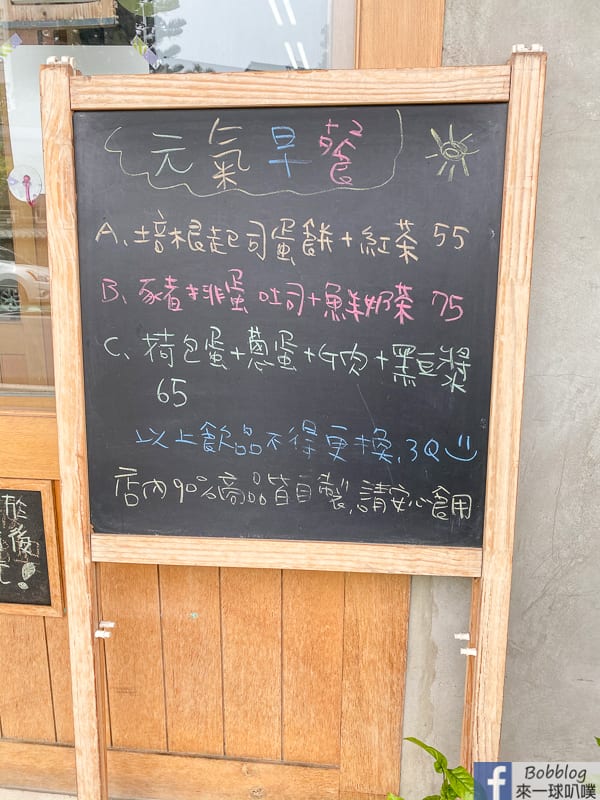 元氣早餐
A、培根起司蛋餅+紅茶 55
B、豬排蛋吐司+鮮奶茶 75
C、荷包蛋+蔥蛋+G肉+黑豆漿
65
以上飲品不得更換,3Q
店內90%商品皆自製,請安心食用
於
後
!
Bobblog
來一球叭噗